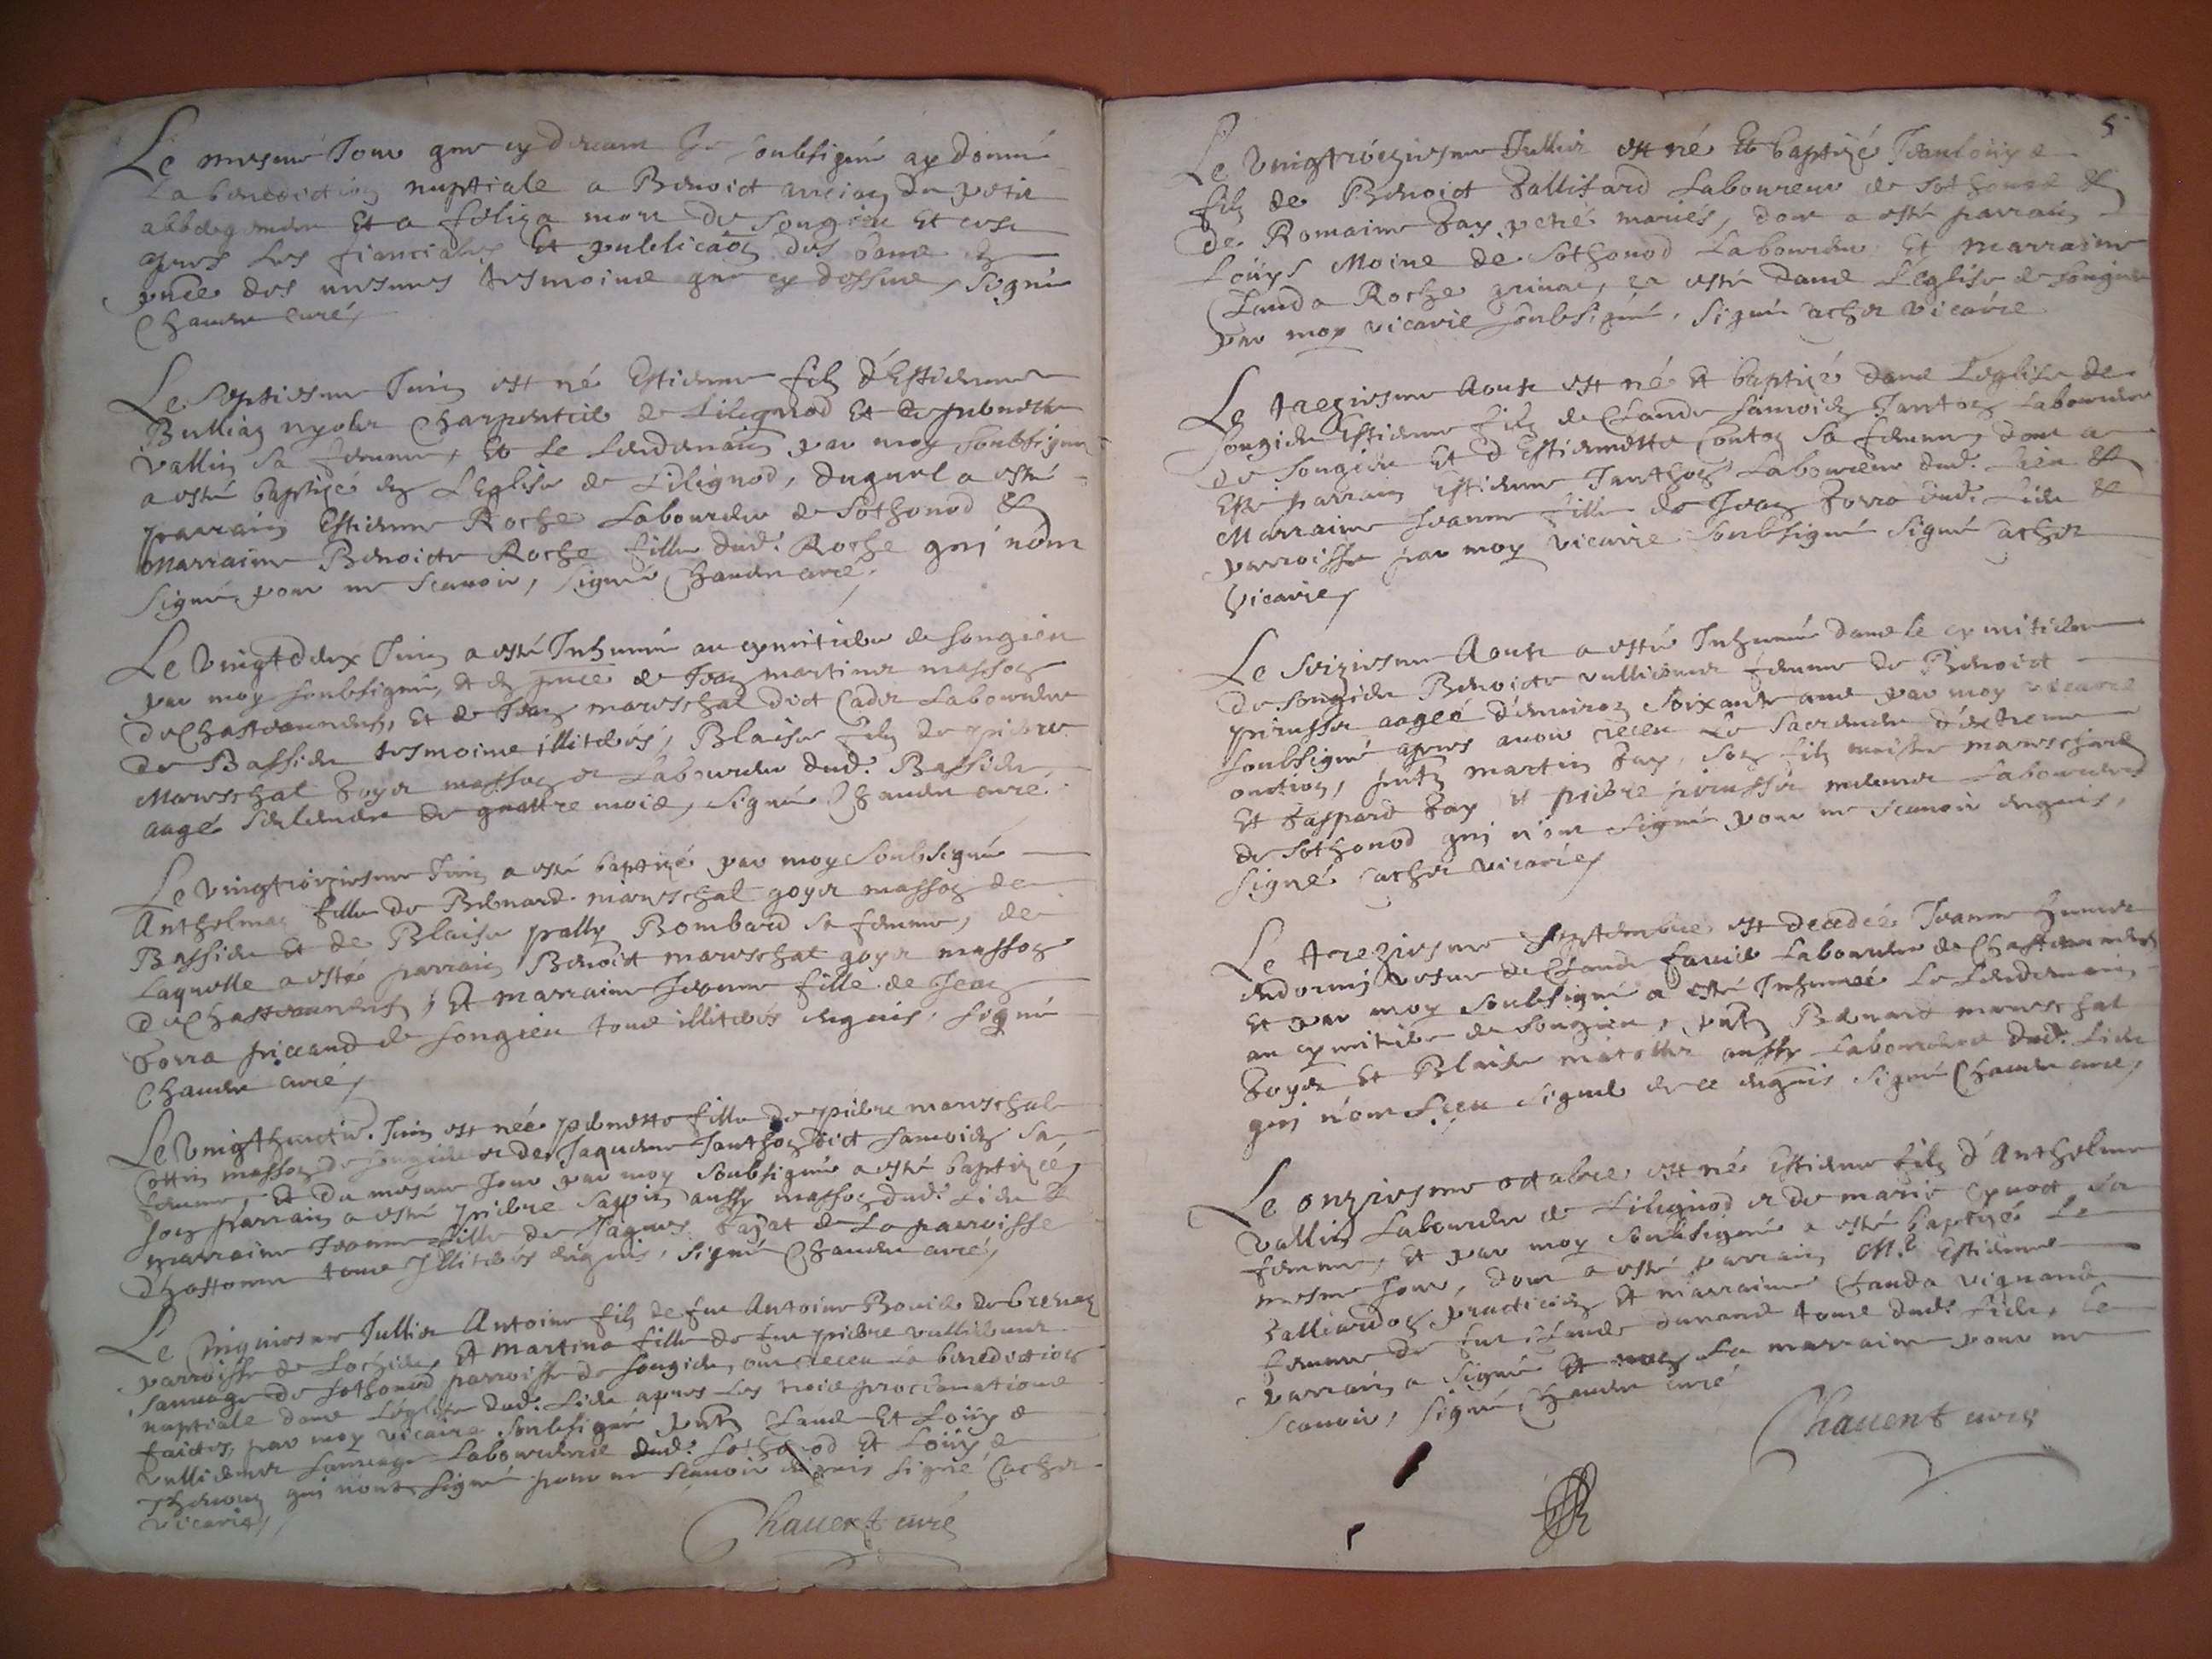 Le mesme Jour que cy devant Je soubsigné ay donné
La benediction nuptiale a Benoict ancian du petit
abbergement Et a feliza mou de Songieu Et ce
apres Les fiancialles Et publicaon des bans En
pnce des mesmes tesmoins que cy dessus, signé
Chauent curé,
Le Septiesme Juin est né Estienne filz d'Estienne
Bullian nyolet Charpentier de Lilignod Et de pernette
Vallin sa femme, Et Le Lendemain par moy soubsigné
a esté baptizé En L'Eglise de Lilignod, duquel a esté
parrain Estienne Roche Laboureur de Sothonod Et
Marraine Benoicte Roche fille dud. Roche qui n'ont
signé pour ne scavoir, signé Chauent curé,
Le Vingtdeux Juin a esté Inhumé au cymitiere de Songieu
par moy soubsigné, Et En pnce de Jean martinet masson
de Chasteauneuf, Et de Jean mareschal dict Cadet Laboureur
de Bassieu tesmoins illiterés, Blaise filz de pierre
Mareschal Goyet masson et Laboureur dud. Bassieu,
aagé seulement de quattre mois, signé Chauent curé.
Le Vingtroiziesme Juin a esté baptizé par moy soubsigné
Anthelma fille de Bernard mareschal goyet masson de
Bassieu Et de Blaise pally Bombard sa femme, de
Laquelle a esté parrain Benoict mareschal goyet masson
de Chasteauneuf, Et marraine Jeanne fille de Jean
Gorra piccand de Songieu tous illiterés Enquis, signé
Chauent curé,
Le Vingthuictie. Juin est née pernette fille de pierre mareschal
Cottin masson de Songieu et de Jaquema Janthon dict Samoin sa
femme, Et du mesme Jour par moy soubsigné a esté baptizée,
son parrain a esté pierre Sappin aussy masson dud. Lieu Et
marraine Jeanne fille de Jaques Fajat de La parroisse
d'hostonne tous Illiterés Enquis, signé Chauent curé,
Le Cinquiesme Jullier Antoine filz de feu Antoine Bovier de brenaz
parroisse de Lochieu, Et Martina fille de feu pierre vulliemet
Sauvage de Sothonod parroisse de Songieu, ont receu La benediction
nuptiale dans L'église dud. Lieu apres Les trois proclamations
faictes, par moy vicaire soubsigné pntz Claude Et Loüys
vulliemet Sauvage Laboureurs dud. Sothonod Et Loüys
Thevenon qui n'ont signé pour ne scavoir Enquis signé Cachet
Vicaire,
Chauent curé
5
Le Vingtroiziesme Jullier est né Et baptizé Jeanloüys
filz de Benoict Gallisard Laboureur de Sothonod Et
de Romaine Gay pené mariés, dont a esté parrain
Loüys Moine de Sothonod Laboureur Et Marraine
Clauda Roche, et esté dans L'église de Songieu
par moy vicaire soubsigné, signé Cachet Vicaire
Le treziesme Aoust est né Et baptizé dans L'eglise de
Songieu Estienne filz de Claude Samoin Janton Laboureur
de Songieu Et d'Estiennette Conton sa femme, dont a
Esté parrain Estienne Janthon Laboureur dud. Lieu Et
Marraine Jeanne fille de Jean Gorra dud. Lieu Et
parroisse par moy Vicaire Soubsigné Signé Cachet
Vicaire,
Le Seiziesme Aoust a esté Inhumée dans le cymitiere
de Songieu Benoicte vulliemet femme de Benoict
perusset aagée d'environ Soixante ans par moy vicaire
soubsigné apres avoir receu Le Sacrement d'extreme
onction, pntz Martin Gay, son filz maistre mareschal
Et Gaspard Gay Et pierre perusset Laboureurs
de Sothonod qui n'ont signé pour ne scavoir Enquis,
signé Cachet vicaire,
Le treziesme Septembre est decedée Jeanne
vesve de Claude favier Laboureur de Chasteauneuf
Et par moy soubsigné a esté Inhumée Le Lendemain
au cymitiere de Songieu, pntz Bernard mareschal
Goyet Et Blaise aussy Laboureurs dud. Lieu
qui n'ont sceu signer de ce Enquis Signé Chauent curé,
Le onziesme octobre est né Estienne filz d'Anthelme
Vallin Laboureur de Lilignod et de marie sa
femme, Et par moy soubsigné a esté baptizé Le
mesme Jour, dont a esté parrain M.e Estienne
Galliardon practicien Et marraine Clauda vignand
femme de feu Claude dunand tous dud. Lieu, Le
parrain a signé Et non La marraine pour ne
scavoir, signé Chauent curé
Chauent curé